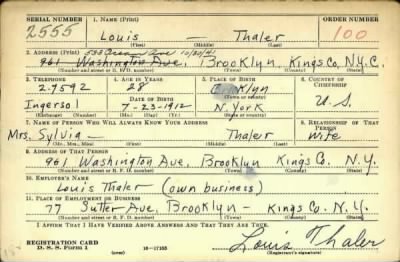 SERIAL NUMBER 1. NAME (Print) ORDER NUMBER
2555 Louis — Thaler 100
(First) (Middle) (Last)
2. ADDRESS (Print) 10/30/41
961 Washington Ave, Brooklyn, Kings Co, N.Y.C.
(Number and street or R. F. D. number) (Town) (County) (State)
3. TELEPHONE 4. AGE IN YEARS 5. PLACE OF BIRTH 6. COUNTRY OF CITIZENSHIP
2-9592 28 klyn
DATE OF BIRTH (Town or county)
Ingersol 7-23-1912 N. York U.S.
(Exchange) (Number) (Mo.) (Day) (Yr.) (State or country)
7. NAME OF PERSON WHO WILL ALWAYS KNOW YOUR ADDRESS 8. RELATIONSHIP OF THAT PERSON
Mrs. Sylvia — Thaler Wife
(Mr., Mrs., Miss) (First) (Middle) (Last)
9. ADDRESS OF THAT PERSON
961 Washington Ave, Brooklyn Kings Co. N.Y.
(Number and street or R. F. D. number) (Town) (County) (State)
10. EMPLOYER'S NAME
Louis Thaler (own business)
11. PLACE OF EMPLOYMENT OR BUSINESS
77 Sutter Ave, Brooklyn - Kings Co. N.Y.
(Number and street or R. F. D. number) (Town) (County) (State)
I AFFIRM THAT I HAVE VERIFIED ABOVE ANSWERS AND THAT THEY ARE TRUE.
REGISTRATION CARD
D. S. S. Form 1 (over) 16—17105 Louis Thaler
(Registrant's signature)